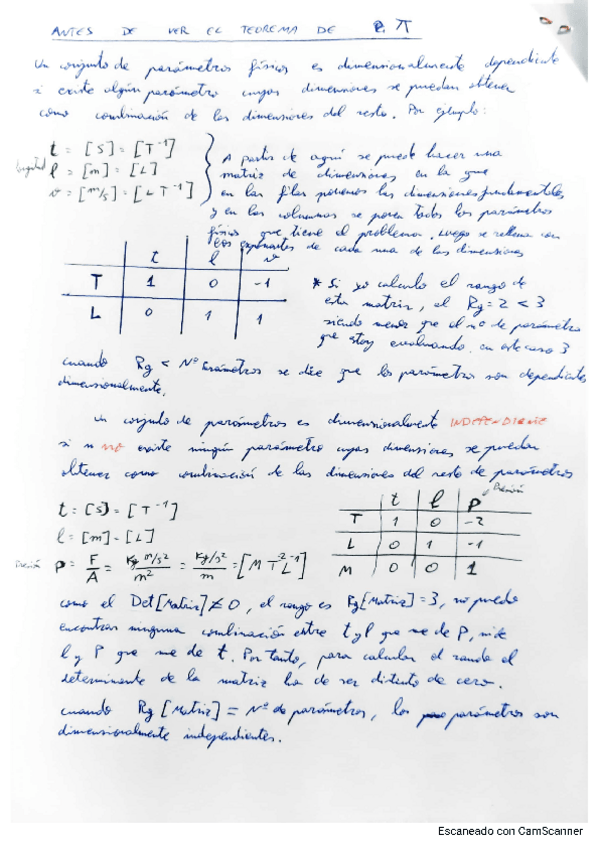 ANTES DE VER EL TEOREMA DE π
Un conjunto de parámetros físicos es dimensionalmente dependiente
si existe algún parámetro cuyas dimensiones se puedan obtener
como combinación de las dimensiones del resto. Por ejemplo:
t = [S] = [T⁻¹]
longitud l = [m] = [L]
v = [m/s] = [L T⁻¹]
A partir de aquí se puede hacer una
matriz de dimensiones en la que
en las filas ponemos las dimensiones fundamentales
y en las columnas se ponen todos los parámetros
físicos que tiene el problema. Luego se rellena con
los exponentes de cada una de las dimensiones
t l v
T 1 0 -1
L 0 1 1
* Si yo calculo el rango de
esta matriz, el Rg = 2 < 3
siendo menor que el nº de parámetros
que estoy evaluando. en este caso 3
cuando Rg < Nº parámetros se dice que los parámetros son dependientes
dimensionalmente.
Un conjunto de parámetros es dimensionalmente INDEPENDIENTE
si no existe ningún parámetro cuyas dimensiones se puedan
obtener como combinación de las dimensiones del resto de parámetros
t = [S] = [T⁻¹]
l = [m] = [L]
Presión P = F/A = (Kg m/s²)/m² = (Kg/s²)/m = [M T⁻² L⁻¹]
Presión
t l P
T 1 0 -2
L 0 1 -1
M 0 0 1
como el Det[Matriz] ≠ 0, el rango es Rg[Matriz] = 3, no puedo
encontrar ninguna combinación entre t y l que me de P, ni de
l y P que me de t. Por tanto, para calcular el rando el
determinante de la matriz ha de ser distinto de cero.
cuando Rg [Matriz] = Nº de parámetros, los parámetros son
dimensionalmente independientes.
Escaneado con CamScanner